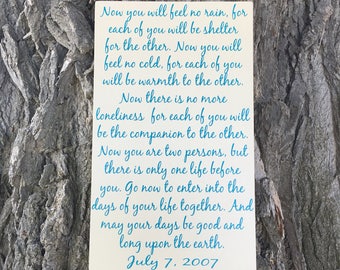 Now you will feel no rain, for
each of you will be shelter
for the other. Now you will
feel no cold, for each of you
will be warmth to the other.
Now there is no more
loneliness for each of you will
be the companion to the other.
Now you are two persons, but
there is only one life before
you. Go now to enter into the
days of your life together. And
may your days be good and
long upon the earth.
July 7, 2007